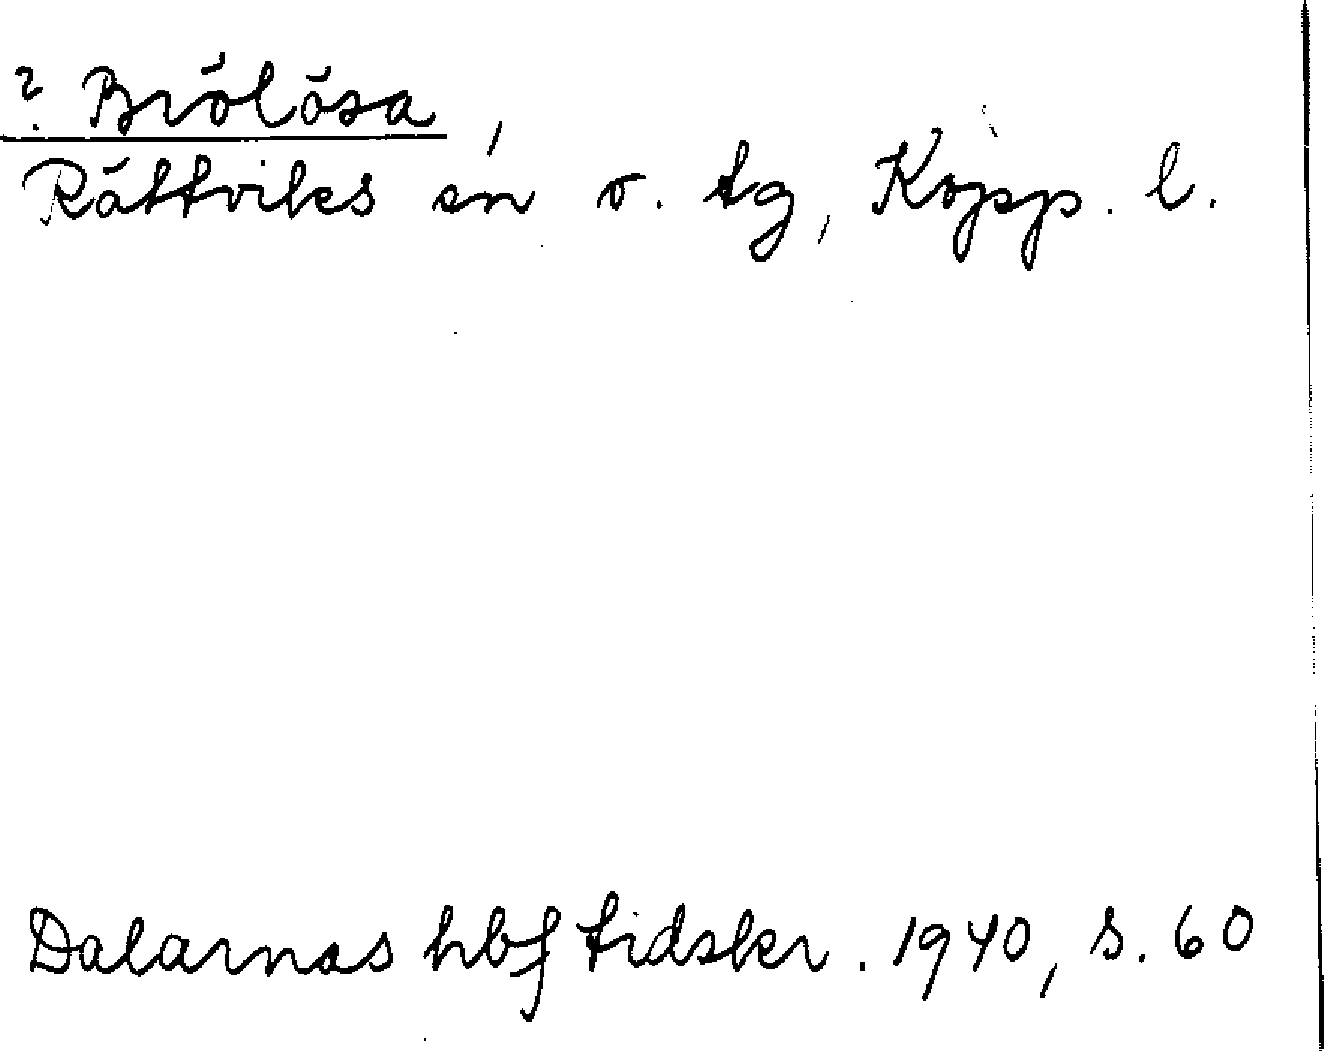 ? Brölösa,
Rättviks sn o. tg, Kopp. l.
Dalarnas hbf tidskr. 1940, s. 60